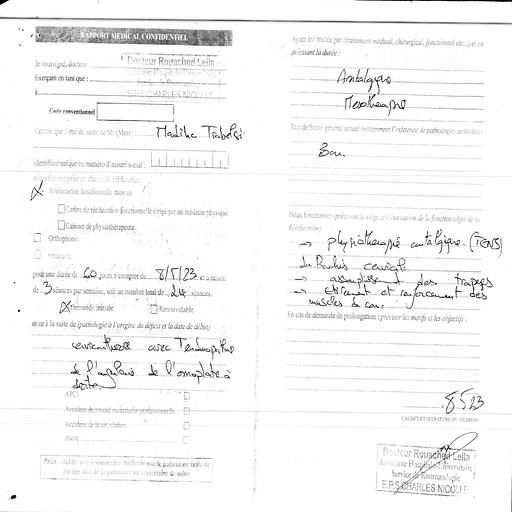 RAPPORT MEDICAL CONFIDENTIEL
Je soussigné, docteur :
Docteur Rouached Leila
Assistante Hospitalo-Universitaire
Service de Rhumatologie
E.P.S CHARLES NICOLLE
Exerçant en tant que :
à
Code conventionnel
Certifie que l'état de santé de Mr (Mme)
Madiha Trabelsi
identifiant unique ou numéro d'assuré social :
nécessite une prise en charge de rééducation
Rééducation fonctionnelle dans un
Centre de rééducation fonctionnelle dirigé par un médecin physique
Cabinet de physiothérapeute
Orthophonie
pour une durée de 60 jours à compter du 8/5/23 et à raison
de 3 séances par semaine, soit un nombre total de 24 séances.
Demande initiale
Renouvelable
et ce à la suite de (pathologie à l'origine du déficit et la date de début)
cervicarthrose avec Tendinopathie
de l'angulaire de l'omoplate à
droite
APCI
Accident de travail ou maladie professionnelle
Accident de la circulation
Autre
Prière établir une ordonnance médicale que le patient est tenu de
garder afin de la présenter au prestataire de soins.
Ayant été traitée par (traitement médical, chirurgical, fonctionnel etc...) et en
précisant la durée :
Antalgique
Mesotherapie
Etat de Santé général actuel (notamment l'existence de pathologies associées)
Bon.
Bilan fonctionnel (précisant le siège et l'évaluation de la fonction objet de la
Rééducation)
→ physiothérapie antalgique. (TENS)
du Rachis cervical
→ assouplissement des trapèzes
→ étirement et renforcement des
muscles du cou.
En cas de demande de prolongation ; préciser les motifs et les objectifs :
8/5/23
CACHET ET SIGNATURE DU MEDECIN
Docteur Rouached Leila
Assistante Hospitalo-Universitaire
Service de Rhumatologie
E.P.S CHARLES NICOLLE